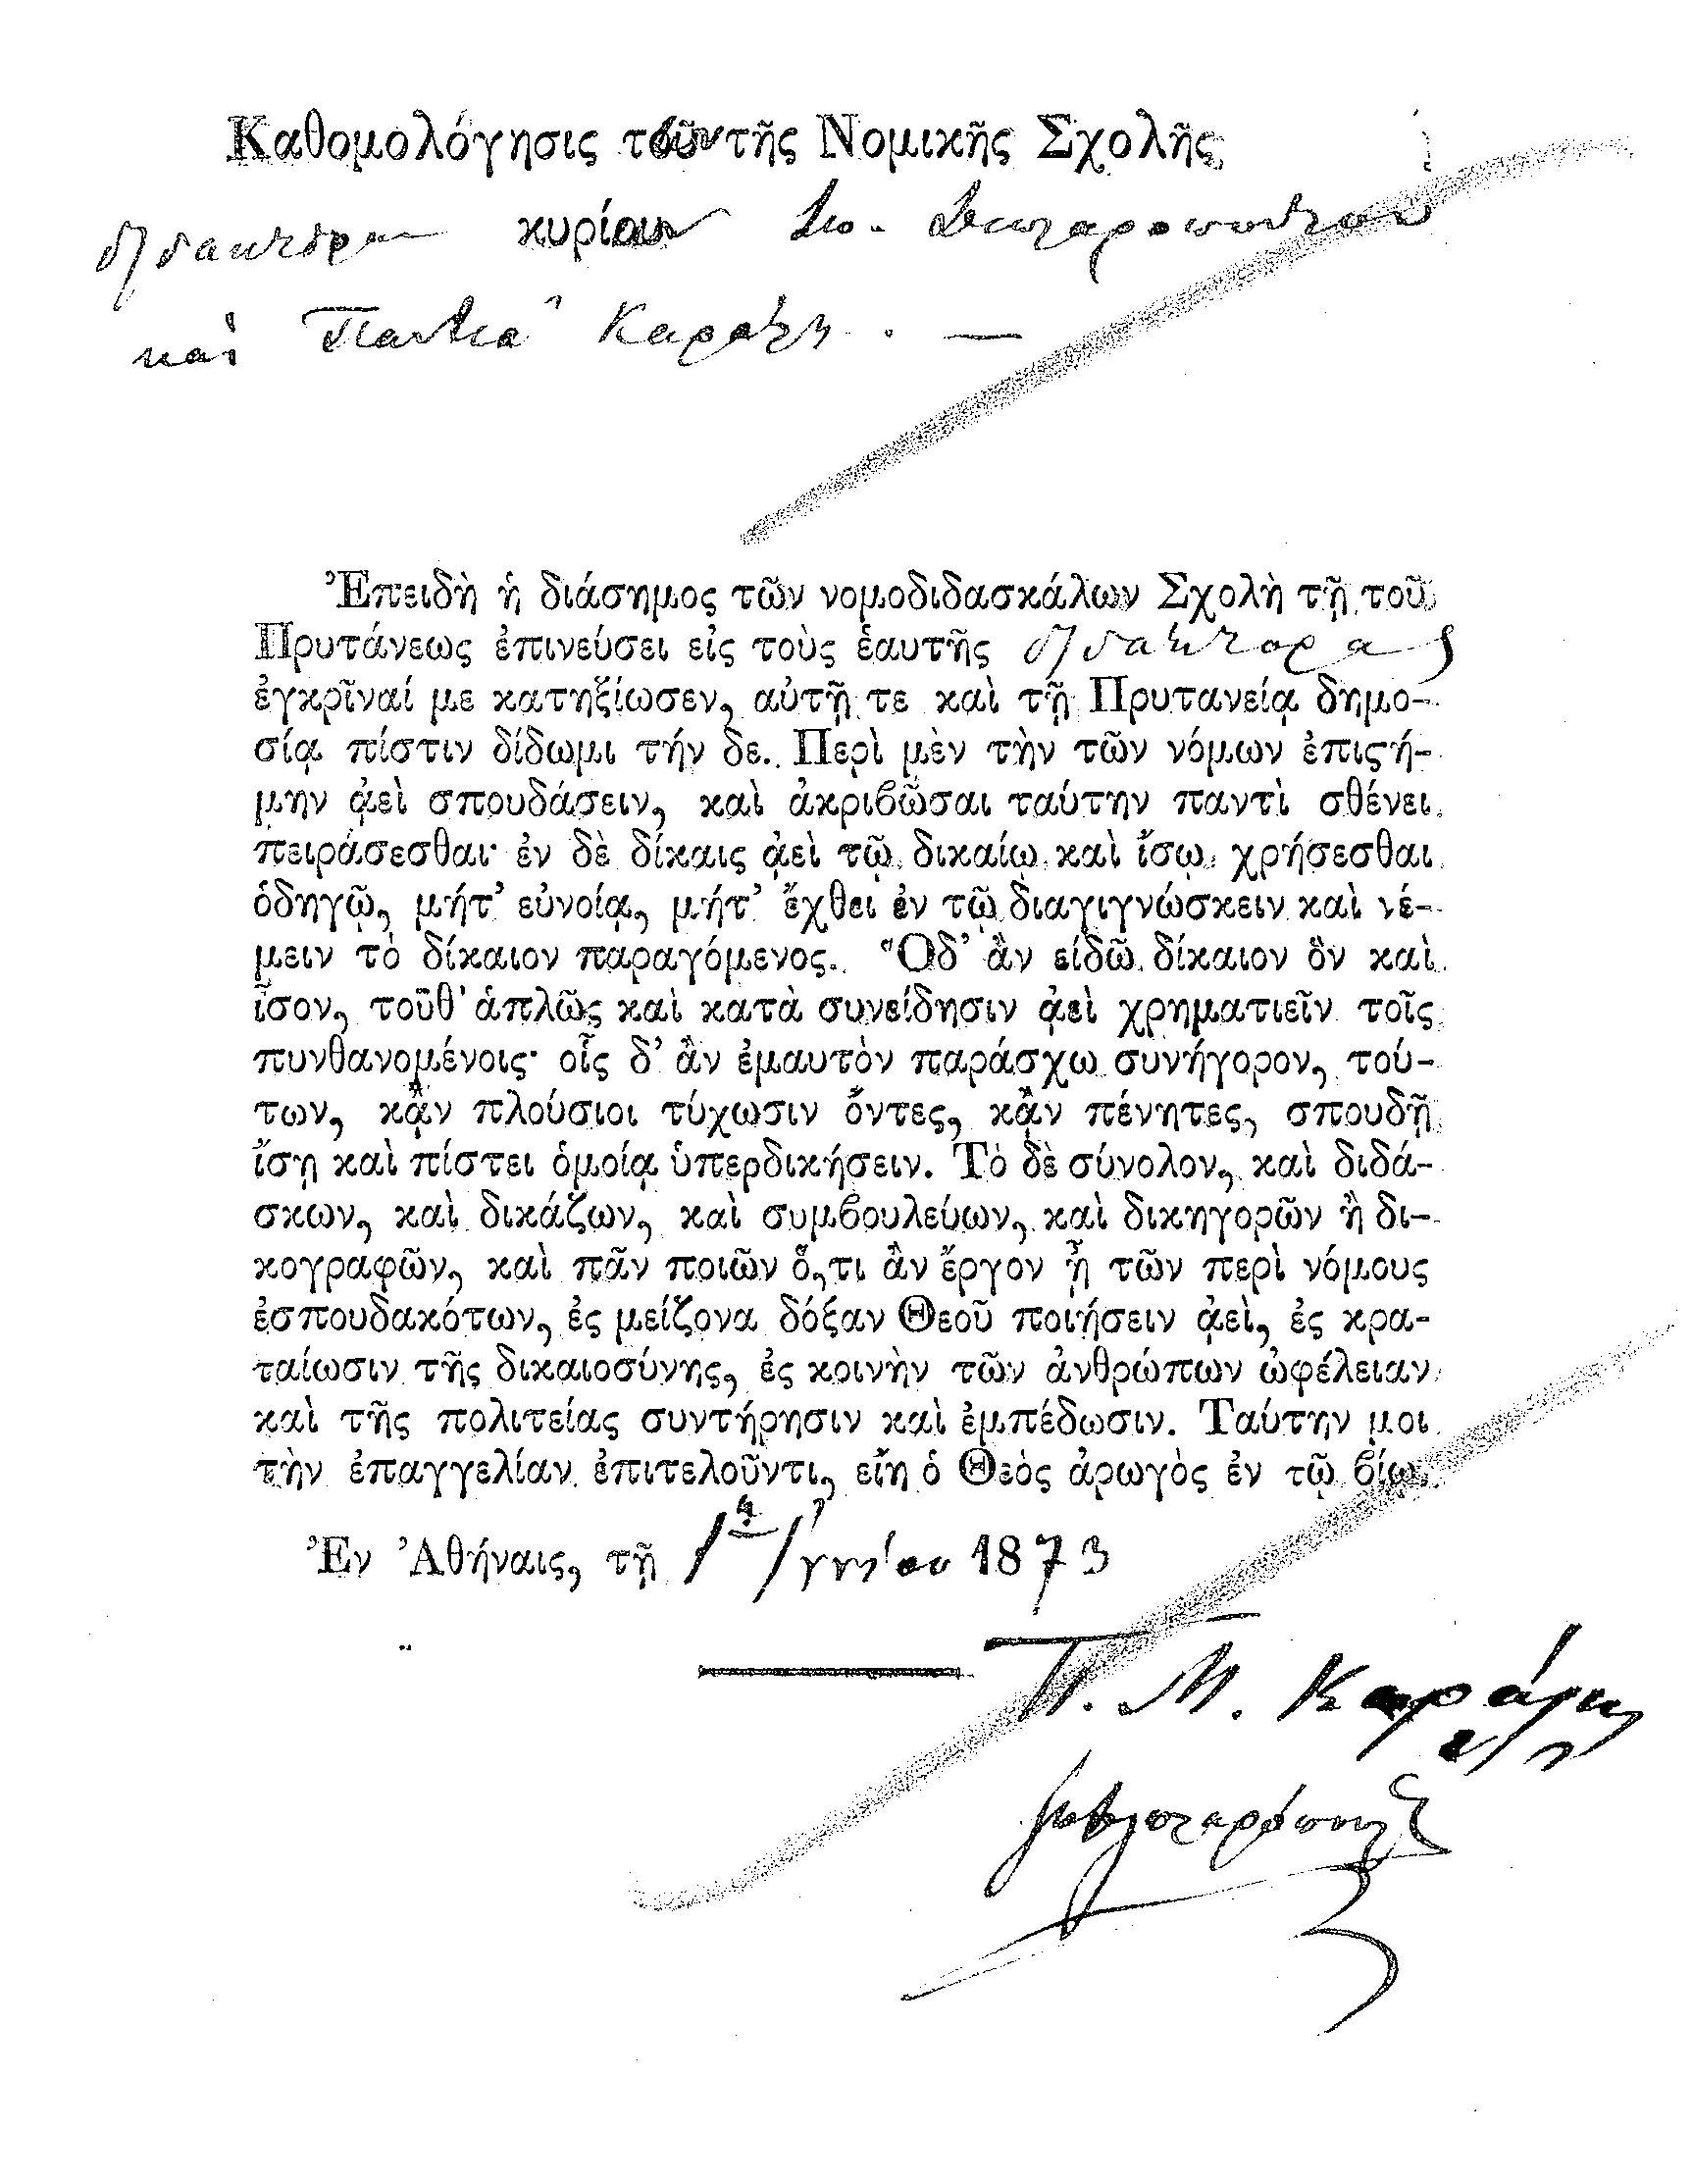 Καθομολόγησις τῶν τῆς Νομικῆς Σχολῆς
διδακτόρων κυρίων
καὶ Παντιᾶ Καράλη. —
Ἐπειδὴ ἡ διάσημος τῶν νομοδιδασκάλων Σχολὴ τῇ τοῦ
Πρυτάνεως ἐπινεύσει εἰς τοὺς ἑαυτῆς διδάκτορας
ἐγκρῖναί με κατηξίωσεν, αὐτῇ τε καὶ τῇ Πρυτανείᾳ δημο-
σίᾳ πίστιν δίδωμι τήν δε. Περὶ μὲν τὴν τῶν νόμων ἐπιϛή-
μην ᾀεὶ σπουδάσειν, καὶ ἀκριβῶσαι ταύτην παντὶ σθένει
πειράσεσθαι· ἐν δὲ δίκαις ᾀεὶ τῷ δικαίῳ καὶ ἴσῳ χρήσεσθαι
ὁδηγῷ, μήτ' εὐνοίᾳ, μήτ' ἔχθει ἐν τῷ διαγιγνώσκειν καὶ νέ-
μειν τὸ δίκαιον παραγόμενος. Ὃδ' ἂν εἰδῶ δίκαιον ὂν καὶ
ἶσον, τοῦθ' ἁπλῶς καὶ κατὰ συνείδησιν ᾀεὶ χρηματιεῖν τοῖς
πυνθανομένοις· οἷς δ' ἂν ἐμαυτὸν παράσχω συνήγορον, τού-
των, κᾂν πλούσιοι τύχωσιν ὄντες, κᾂν πένητες, σπουδῇ
ἴσῃ καὶ πίστει ὁμοίᾳ ὑπερδικήσειν. Τὸ δὲ σύνολον, καὶ διδά-
σκων, καὶ δικάζων, καὶ συμβουλεύων, καὶ δικηγορῶν ἢ δι-
κογραφῶν, καὶ πᾶν ποιῶν ὅ,τι ἂν ἔργον ᾖ τῶν περὶ νόμους
ἐσπουδακότων, ἐς μείζονα δόξαν Θεοῦ ποιήσειν ᾀεὶ, ἐς κρα-
ταίωσιν τῆς δικαιοσύνης, ἐς κοινὴν τῶν ἀνθρώπων ὠφέλειαν
καὶ τῆς πολιτείας συντήρησιν καὶ ἐμπέδωσιν. Ταύτην μοι
τὴν ἐπαγγελίαν ἐπιτελοῦντι, εἴη ὁ Θεὸς ἀρωγὸς ἐν τῷ βίῳ.
Ἐν Ἀθήναις, τῇ 1ῃ Ἰουνίου 1873
Π. Μ. Καράλης